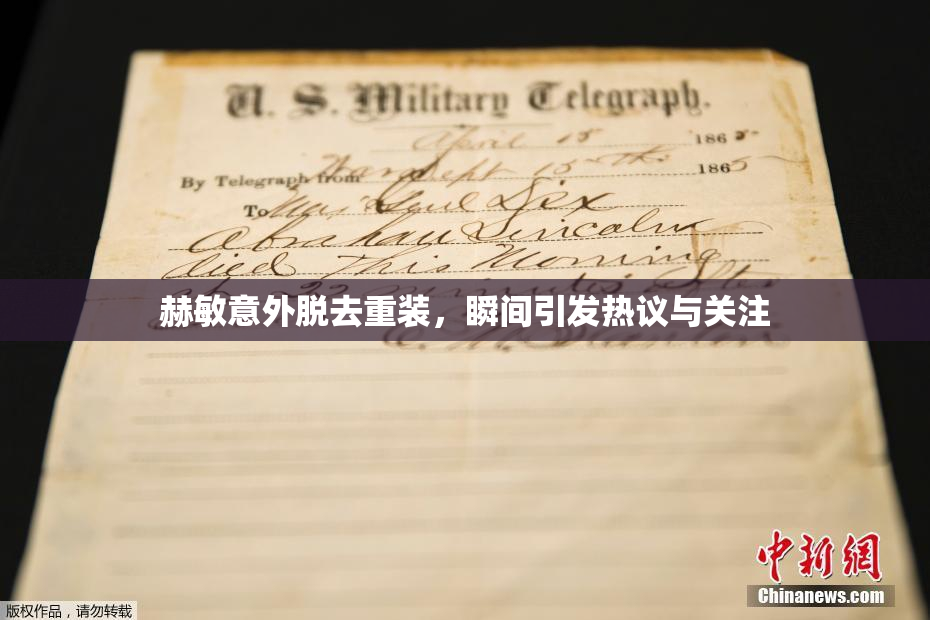 U. S. Military Telegraph.
April 15 1865
By Telegraph from War Dept 15th 1865
To Maj Genl Dix
Abraham Lincoln
died This Morning
at 22 minutes after
赫敏意外脱去重装，瞬间引发热议与关注
E. M. Stanton
中新网
Chinanews.com
版权作品，请勿转载